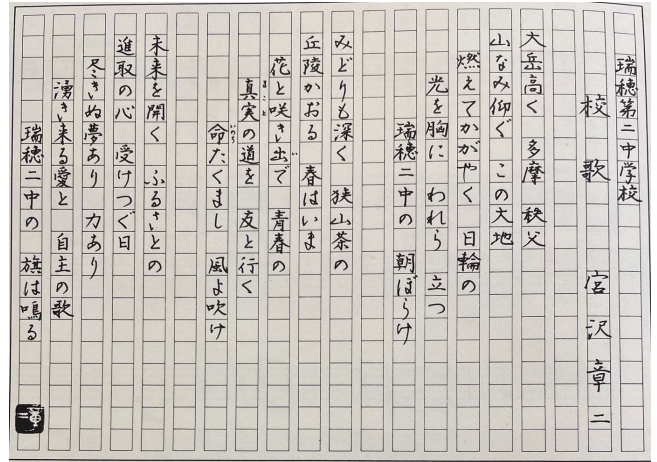 瑞穂第二中学校
校歌 宮沢章二
大岳高く 多摩 秩父
山なみ仰ぐ この大地
燃えてかがやく 日輪の
光を胸に われら 立つ
瑞穂二中の 朝ぼらけ
みどりも深く 狭山茶の
丘陵かおる 春はいま
花と咲き出で 青春の
真実の道を 友と行く
まこと
命たくまし 風よ吹け
いのち
未来を開く ふるさとの
進取の心 受けつぐ日
尽きぬ夢あり 力あり
湧き来る愛と 自主の歌
瑞穂二中の 旗は鳴る